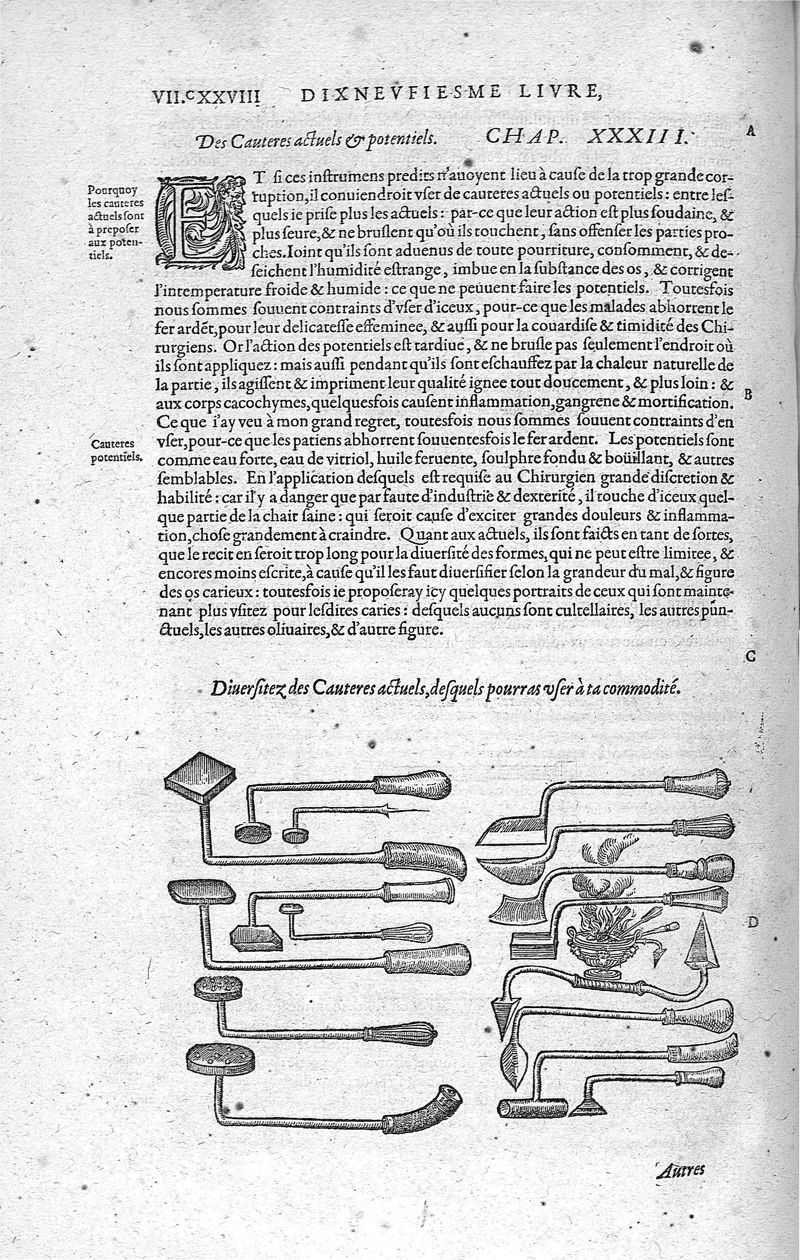 VII.CXXVIII DIXNEVFIESME LIVRE,
Des Cauteres actuels & potentiels. CHAP. XXXIII.
A
Pourquoy
les cauteres
actuels sont
à preposer
aux poten-
tiels.
ET si ces instrumens predits n'auoyent lieu à cause de la trop grande cor-
ruption, il conuiendroit vser de cauteres actuels ou potentiels: entre les-
quels ie prise plus les actuels: par-ce que leur action est plus soudaine, &
plus seure, & ne bruslent qu'où ils touchent, sans offenser les parties pro-
ches. Ioint qu'ils sont aduenus de toute pourriture, consomment, & de-
seichent l'humidité estrange, imbue en la substance des os, & corrigent
l'intemperature froide & humide: ce que ne peuuent faire les potentiels. Toutesfois
nous sommes souuent contraints d'vser d'iceux, pour-ce que les malades abhorrent le
fer ardẽt, pour leur delicatesse effeminee, & aussi pour la couardise & timidité des Chi-
rurgiens. Or l'action des potentiels est tardiue, & ne brusle pas seulement l'endroit où
ils sont appliquez: mais aussi pendant qu'ils sont eschauffez par la chaleur naturelle de
la partie, ils agissent & impriment leur qualité ignee tout doucement, & plus loin: &
B
aux corps cacochymes, quelquesfois causent inflammation, gangrene & mortification.
Ce que i'ay veu à mon grand regret, toutesfois nous sommes souuent contraints d'en
Cauteres
potentiels.
vser, pour-ce que les patiens abhorrent souuentesfois le fer ardent. Les potentiels sont
comme eau forte, eau de vitriol, huile feruente, soulphre fondu & boüillant, & autres
semblables. En l'application desquels est requise au Chirurgien grande discretion &
habilité: car il y a danger que par faute d'industrie & dexterité, il touche d'iceux quel-
que partie de la chair saine: qui seroit cause d'exciter grandes douleurs & inflamma-
tion, chose grandement à craindre. Quant aux actuels, ils sont faicts en tant de sortes,
que le recit en seroit trop long pour la diuersité des formes, qui ne peut estre limitee, &
encores moins escrite, à cause qu'il les faut diuersifier selon la grandeur du mal, & figure
des os carieux: toutesfois ie proposeray icy quelques portraits de ceux qui sont mainte-
nant plus vsitez pour lesdites caries: desquels aucuns sont cultellaires, les autres pun-
ctuels, les autres oliuaires, & d'autre figure.
C
Diuersitez des Cauteres actuels, desquels pourras vser à ta commodité.
D
Autres